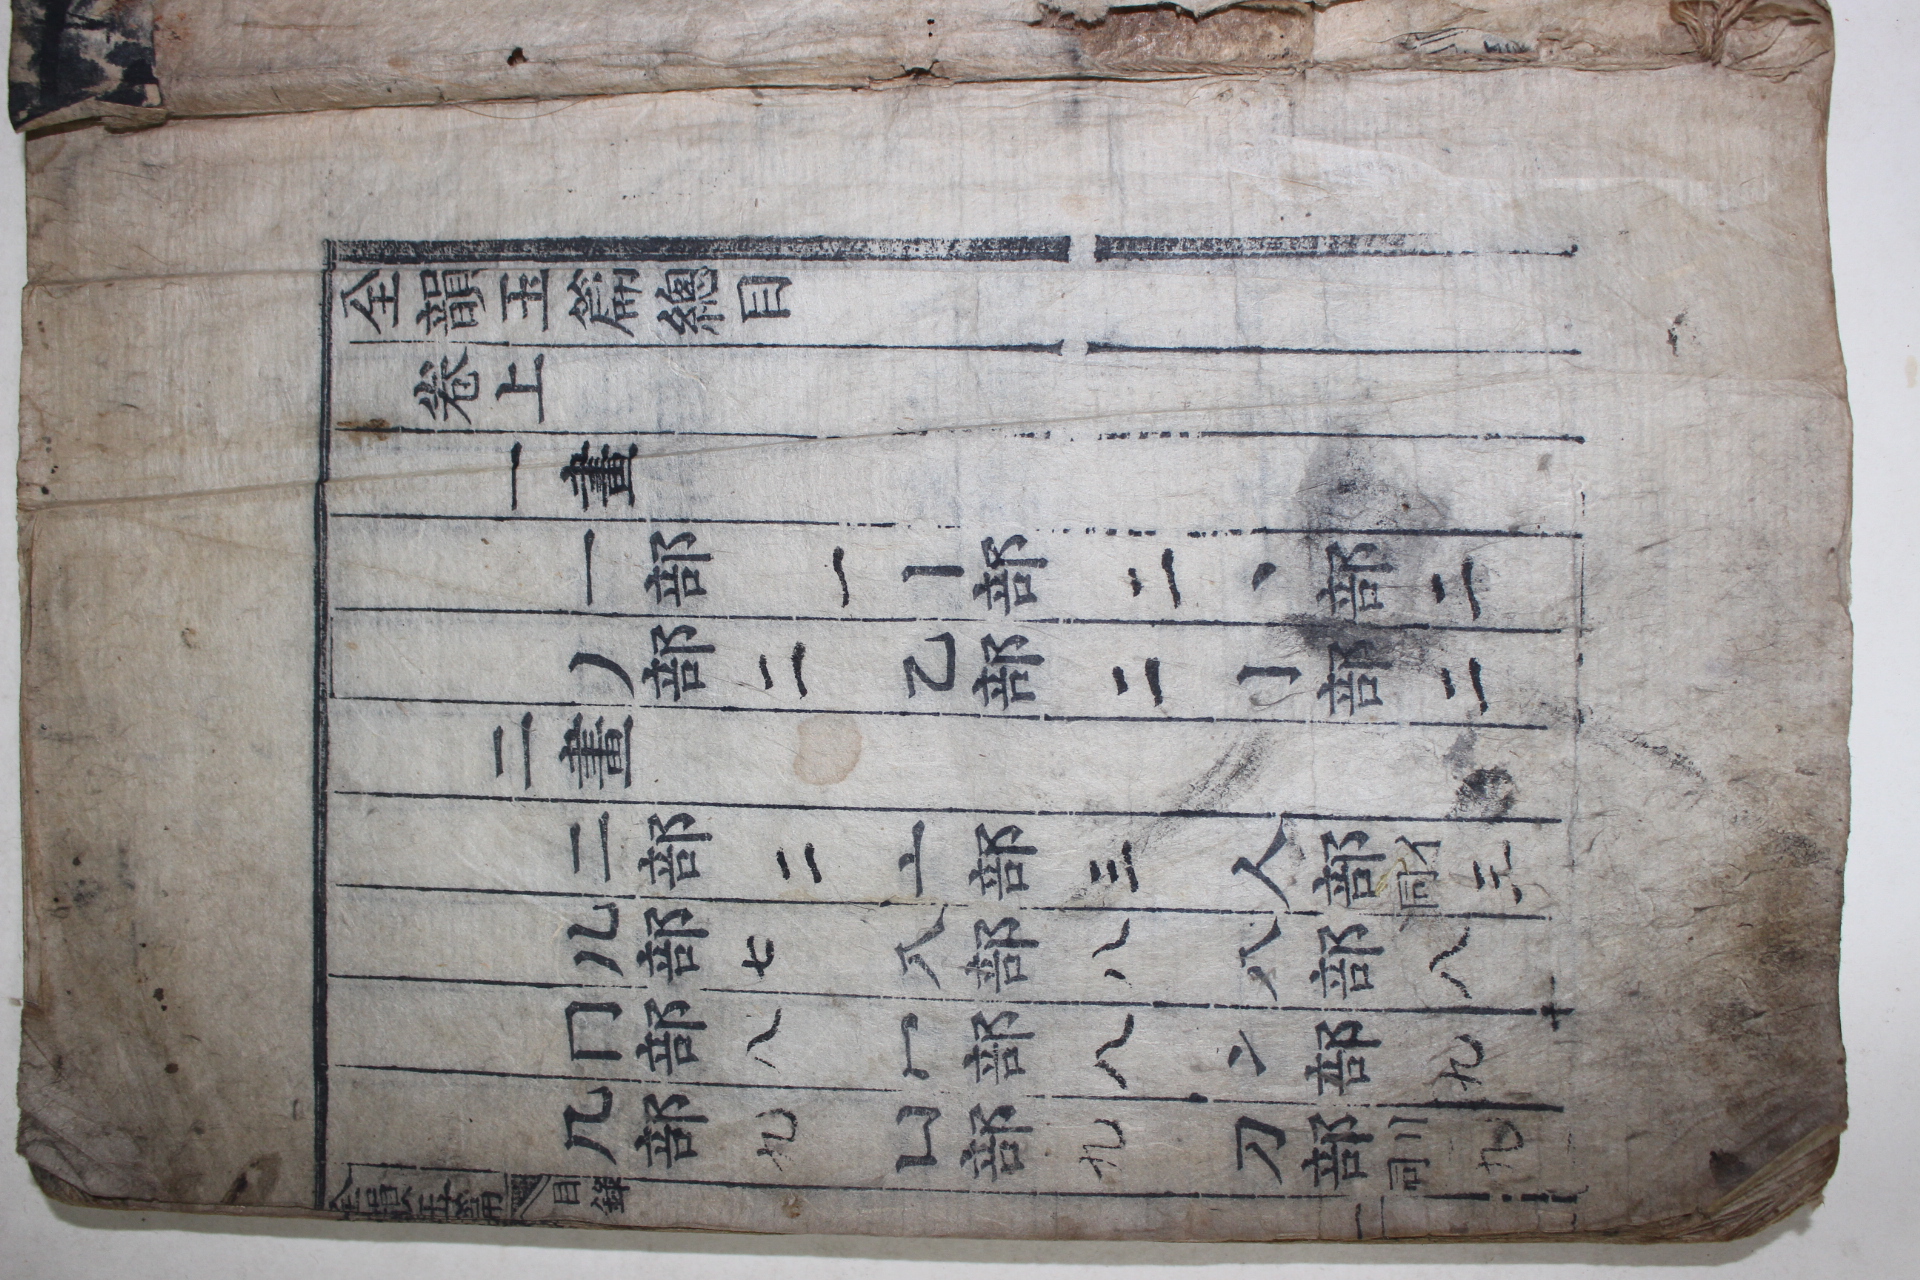 全韻玉篇總目
卷上
一畫
一部 一 丨部 二 丶部 二
丿部 二 乙部 二 亅部 二
二畫
二部 二 亠部 三 人部 亻同 三
儿部 七 入部 八 八部 八
冂部 八 冖部 八 冫部 九
几部 九 凵部 九 刀部 刂同 九
全韻玉篇 目錄